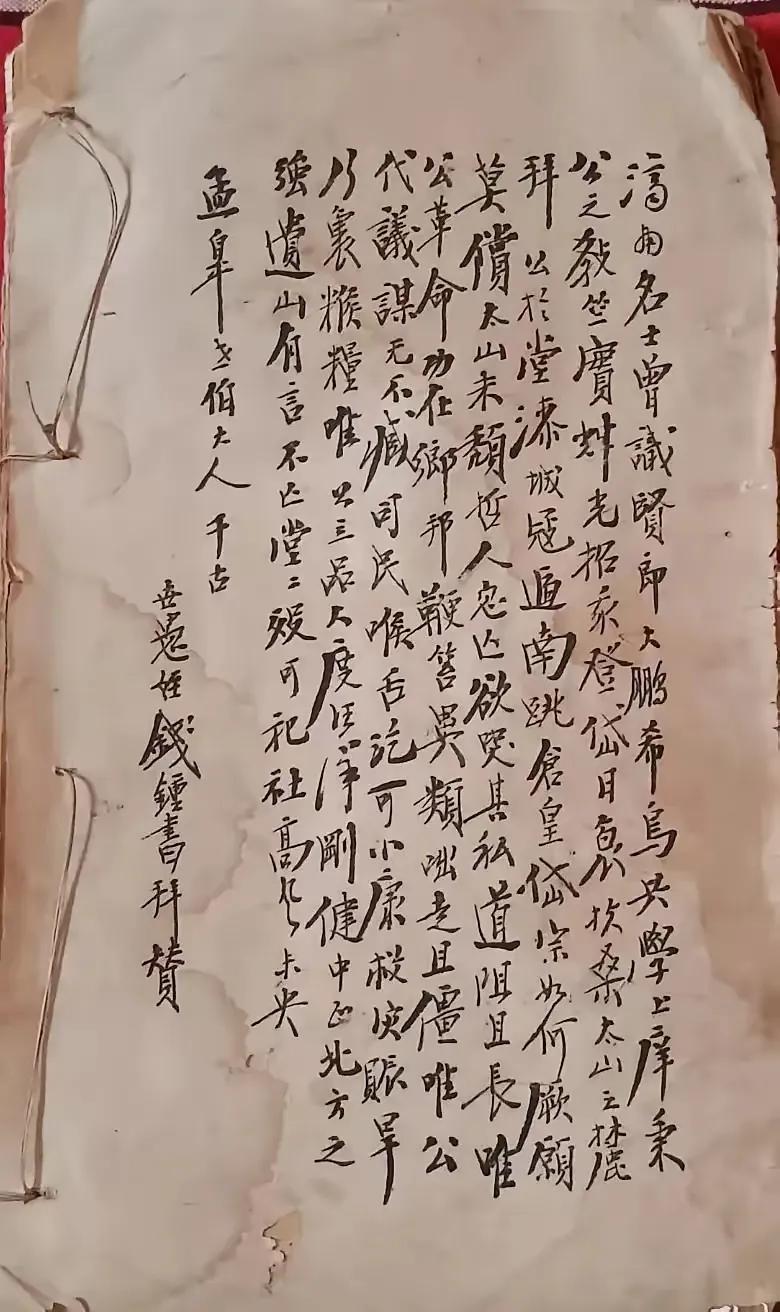 濟南名士曾識賢郎大鵬希烏共學上庠秉
公之教竺實輝光招我登岱日扶桑太山之麓
拜公於堂漆城寇逼南跳倉皇岱宗如何厥願
莫償太山未頹哲人忽亡欲哭其私道阻且長唯
公革命功在鄉邦鞭笞異類咄走且僵唯公
代議謀无不臧司民喉舌汔可小康救灾賑旱
乃裹糇糧唯公三品大度汪洋剛健中正北方之
強遺山有言不亡堂〻歿可祀社高風未央
孟皋老伯大人千古
世愚姪錢鍾書拜贊